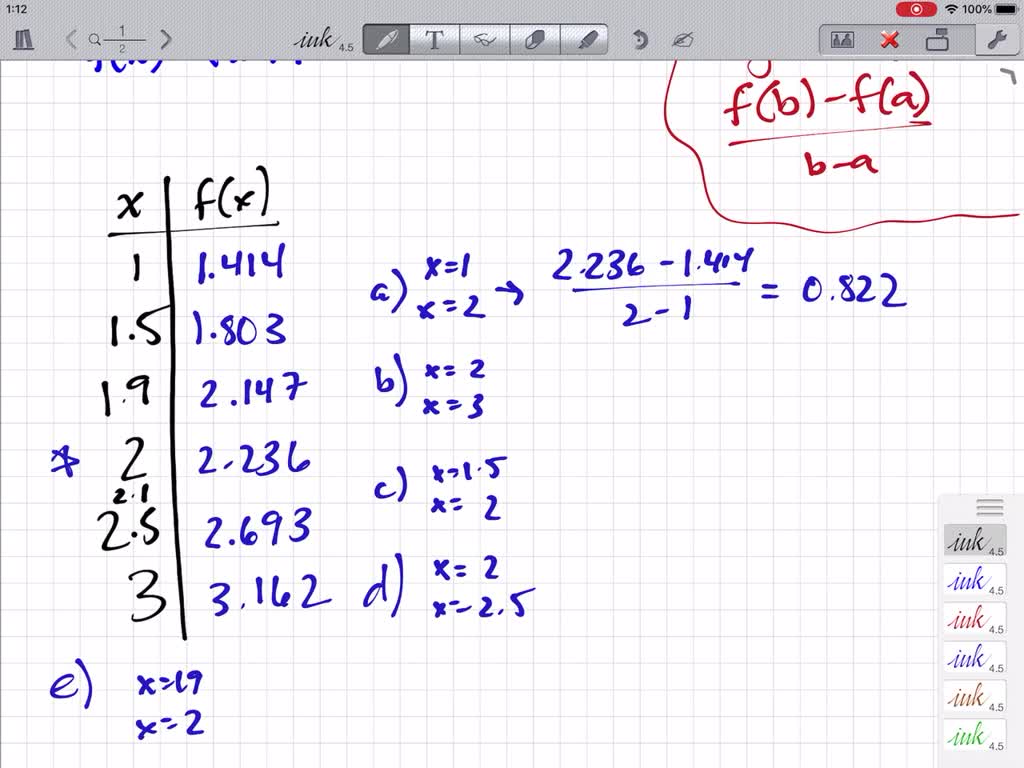 1:12
100%
1
2
ink 4.5
T
f(b)-f(a)
b-a
x f(x)
1 1.414
1.5 1.803
1.9 2.147
* 2 2.236
2.1
2.5 2.693
3 3.162
a) x=1
x=2 → 2.236-1.414
2-1
= 0.822
b) x=2
x=3
c) x=1.5
x= 2
d) x= 2
x=2.5
e) x=19
x=2
ink 4.5
ink 4.5
ink 4.5
ink 4.5
ink 4.5
ink 4.5